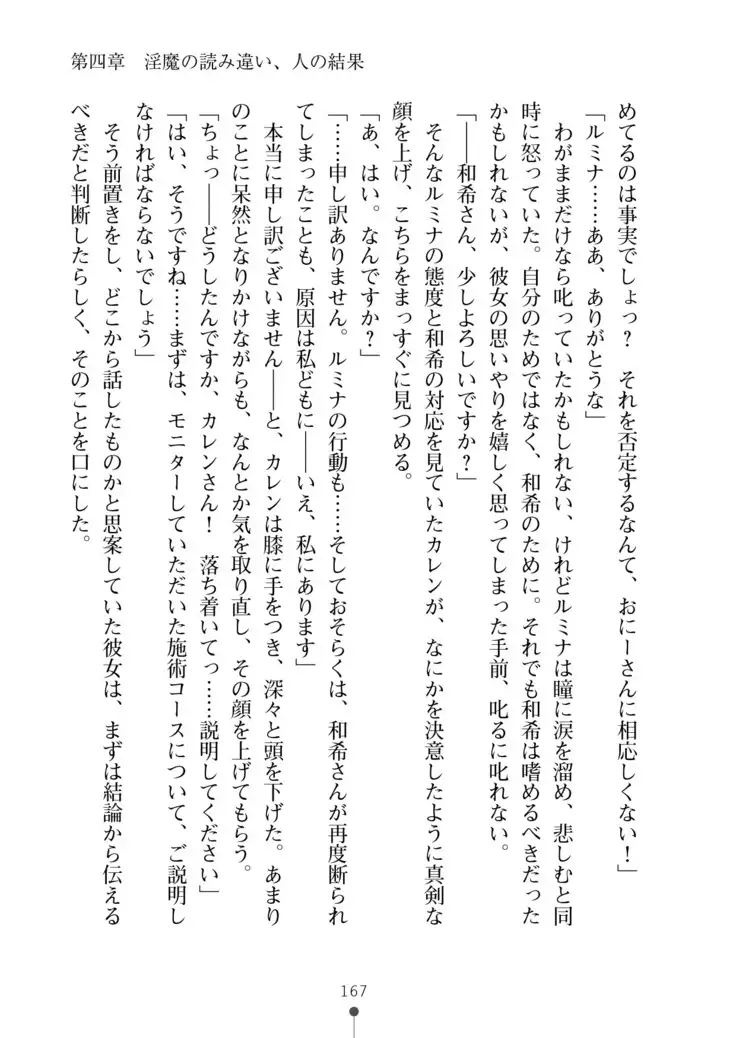 第四章　淫魔の読み違い、人の結果
めてるのは事実でしょっ？　それを否定するなんて、おにーさんに相応しくない！」
「ルミナ……ああ、ありがとうな」
　わがままだけなら叱っていたかもしれない、けれどルミナは瞳に涙を溜め、悲しむと同
時に怒っていた。自分のためではなく、和希のために。それでも和希は嗜めるべきだった
かもしれないが、彼女の思いやりを嬉しく思ってしまった手前、叱るに叱れない。
「――和希さん、少しよろしいですか？」
　そんなルミナの態度と和希の対応を見ていたカレンが、なにかを決意したように真剣な
顔を上げ、こちらをまっすぐに見つめる。
「あ、はい。なんですか？」
「……申し訳ありません。ルミナの行動も……そしておそらくは、和希さんが再度断られ
てしまったことも、原因は私どもに――いえ、私にあります」
　本当に申し訳ございません――と、カレンは膝に手をつき、深々と頭を下げた。あまり
のことに呆然となりかけながらも、なんとか気を取り直し、その顔を上げてもらう。
「ちょっ――どうしたんですか、カレンさん！　落ち着いてっ……説明してください」
「はい、そうですね……まずは、モニターしていただいた施術コースについて、ご説明し
なければならないでしょう」
　そう前置きをし、どこから話したものかと思案していた彼女は、まずは結論から伝える
べきだと判断したらしく、そのことを口にした。
167